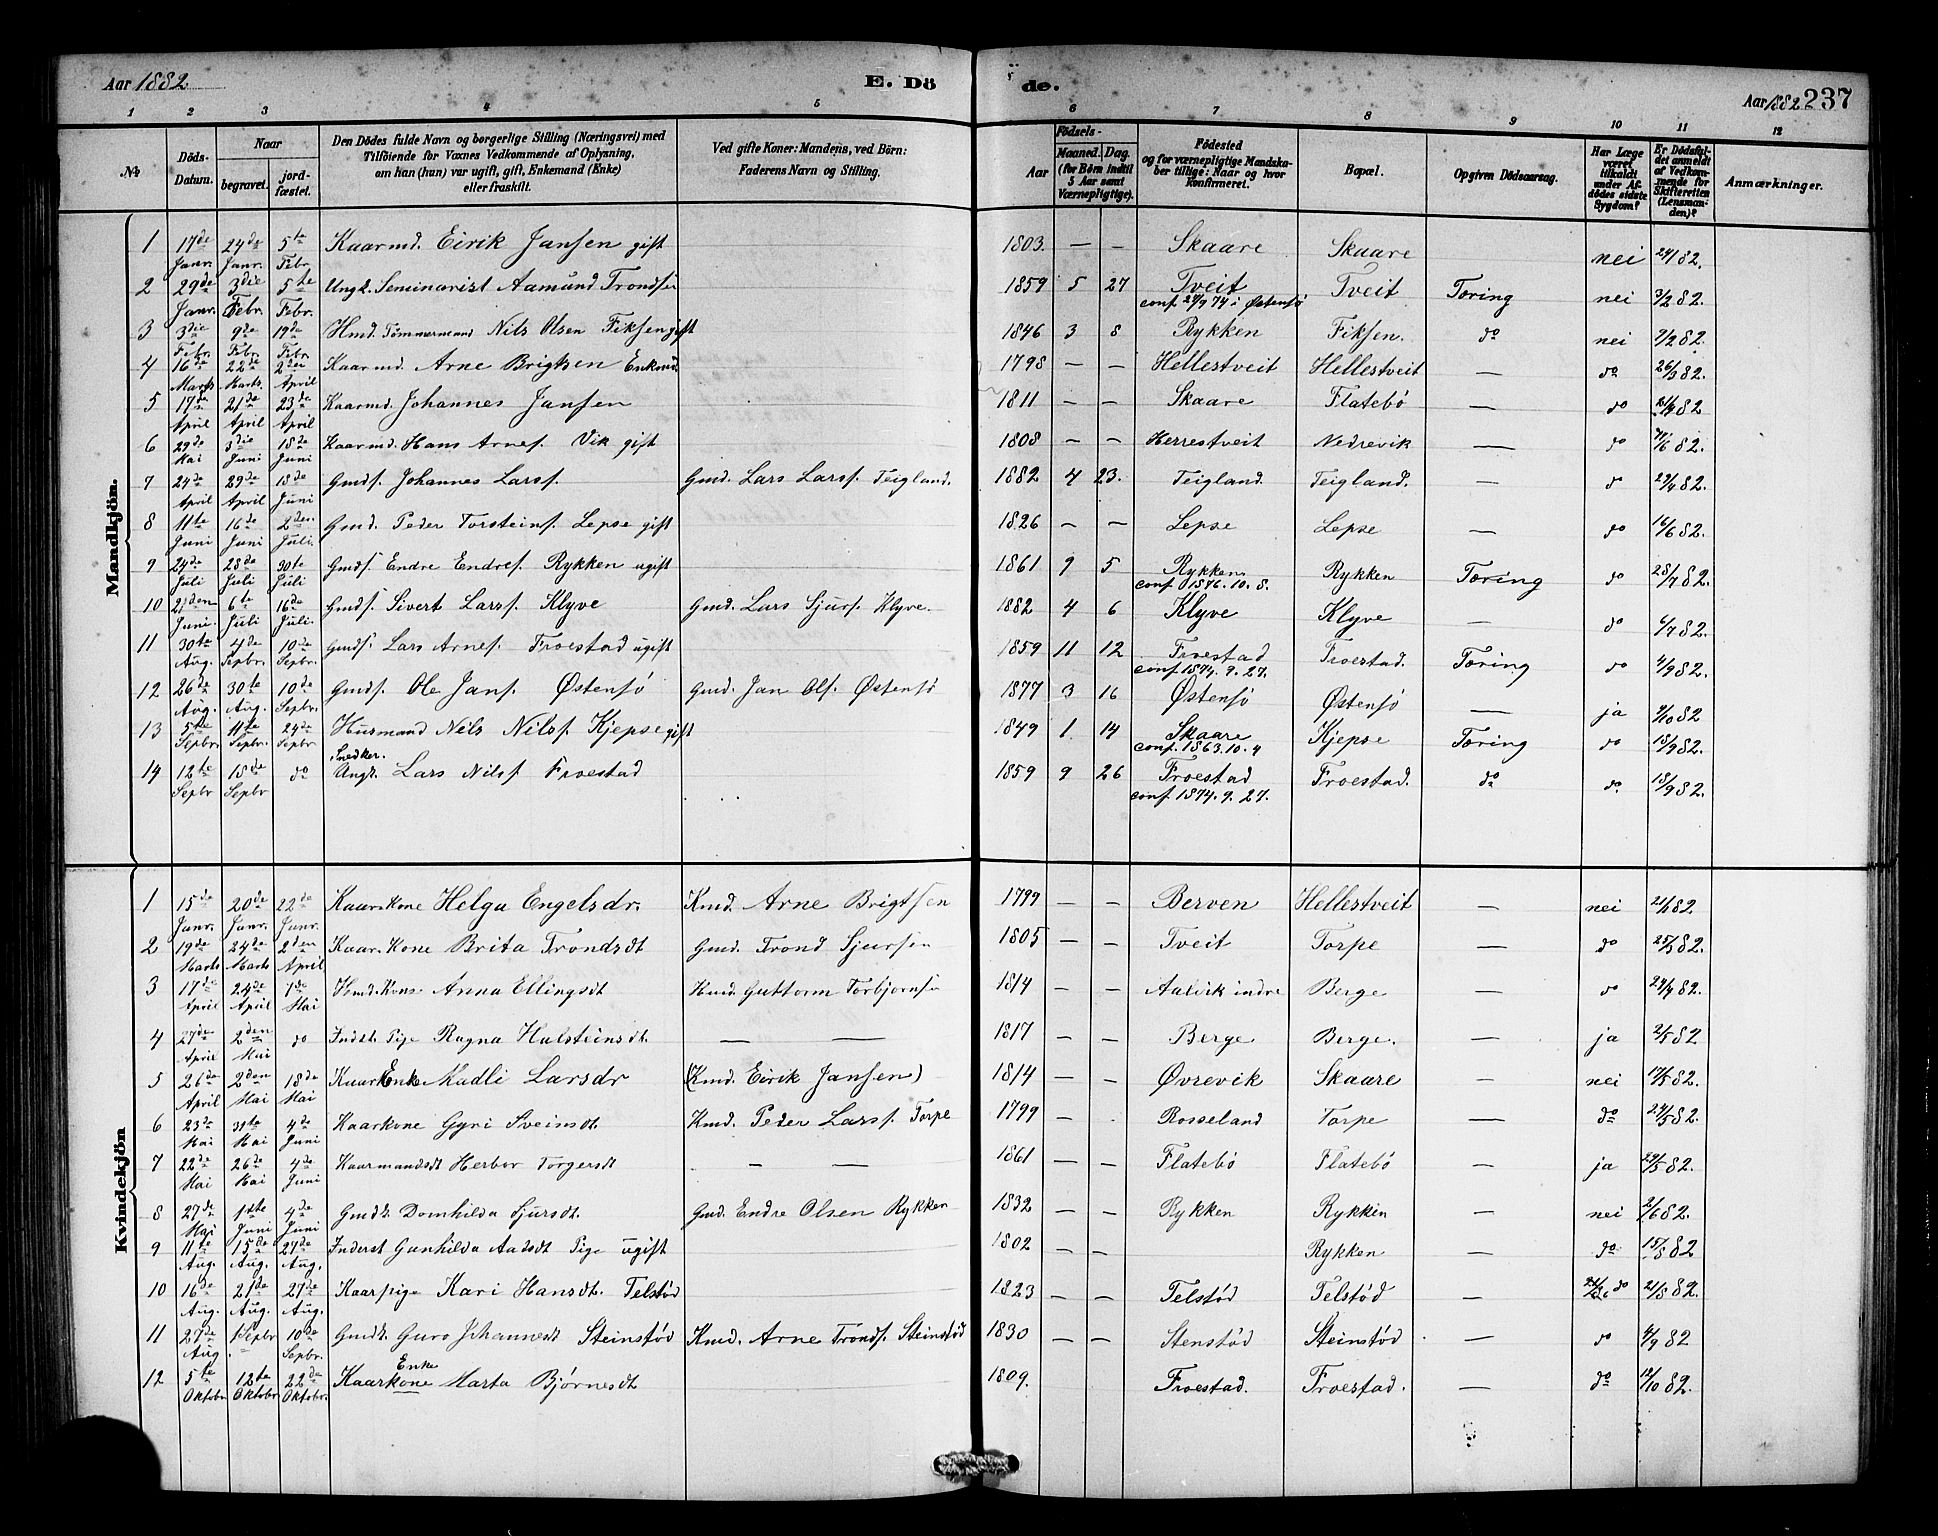 Aar 1882 E. Dö de. Aar 1882 237
1 2 3 4 5 6 7 8 9 10 11 12
№ Döds-Datum. Naar begravet. jordfæstet. Den Dödes fulde Navn og borgerlige Stilling (Næringsvei) med Tilföiende for Voxnes Vedkommende af Oplysning, om han (hun) var ugift, gift, Enkemand (Enke) eller fraskilt. Ved gifte Koner: Mandens, ved Börn: Faderens Navn og Stilling. Födsels- Aar Maaned. Dag. (for Börn indtil 5 Aar samt Værnepligtige). Födested og for værnepligtige Mandskaber tillige: Naar og hvor Konfirmeret. Bopæl. Opgiven Dödsaarsag. Har Læge været tilkaldt under Afdödes sidste Sygdom? Er Dödsfaldet anmeldt af Vedkommende for Skifteretten (Lensmanden)? Anmærkninger.
Mandkjön.
1 17de Janr. 24de Janr. 5te Febr. Kaarmd. Eirik Jansen gift 1803. — — Skaare Skaare nei 24/1 82.
2 29de Janr. 3die Febr. 5te Febr. Ungk. Seminarist Aamund Trondsen 1859 5 27 Tveit conf. 27/9 74 i Østensö Tveit Tæring nei 3/2 82.
3 3die Febr. 9de Febr. 19de Febr. Hmd. Tömmermand Nils Olsen Fiksen gift 1846 3 8 Rykken Fiksen. do nei 7/2 82.
4 16de Marts 22de Marts. 2den April Kaarmd. Arne Brigtsen Enkmd. 1798 — — Hellestveit Hellestveit — do 26/3 82.
5 17de April 21de April 23de April Kaarmd. Johannes Jansen 1811 — — Skaare Flatebö — do 82
6 29de Mai 3die Juni 18de Juni Kaarmd. Hans Arnes. Vik gift 1808 — — Herrestveit Nedrevik — do 82.
7 24de April 29de April 18de Juni Gmds. Johannes Larss. Gmd. Lars Larss. Teigland. 1882 4 23. Teigland Teigland. — do 29/4 82.
8 11te Juni 16de Juni 2den Juli. Gmd. Peder Torsteins. Lepse gift 1826 — — Lepse Lepse — do 16/6 82.
9 24de Juli 28de Juli 30te Juli Gmds. Endre Endres. Rykken ugift 1861 9 5 Rykken conf. 1876. 10. 8. Rykken Tæring do 28/7 82.
10 2den Juni. 6te Juli 16de Juli. Gmds. Sivert Larss. Klyve Gmd. Lars Sjurs. Klyve. 1882 4 6 Klyve Klyve — do 6/7 82.
11 30te Aug. 4de Sepbr. 10de Sepbr. Gmds. Lars Arnes. Froestad ugift 1859 11 12 Froestad conf. 1874. 9. 27. Froestad. Tæring do 4/9 82.
12 26de Aug. 30te Aug. 10de Sepbr. Gmds. Ole Jans. Østensö Gmd. Jan Ols. Østensö 1877 3 16 Østensö Østensö — ja /10 82
13 5te Sepbr. 11te Sepbr. 24de Sepbr Husmand Nils Nilss. Kjepse gift Snedker. 1849 1. 14 Skaare conf. 1863. 10. 4 Kjepse Tæring do 18/9 82.
14 12te Sepbr 18de Sepbr do Ungk. Lars Nilss Froestad 1859 9 26 Froestad conf. 1874. 9. 27. Froestad. do do 18/9 82.
Kvindekjön
1 15de Janr. 20de Janr. 22de Janr. Kaarkone Helga Engelsdr. Kmd. Arne Brigtsen 1799 — — Berven Hellestveit — nei 21/1 82
2 19de Marts 24de Marts 2den April Kaar. Kone Brita Trondsdt Gmd. Trond Sjursen 1805 — — Tveit Torpe — do 25/3 82.
3 17de April 24de April 7de Mai Hmd. Kone Anna Ellingsdt Kmd. Guttorm Torbjornsen 1814 — — Aalvik indre Berge — do 24/4 82.
4 27de April 2den Mai do Indst. Pige Ragna Halsteinsdt. — — 1817 — — Berge Berge. — ja 2/5 82
5 26de April 2den Mai 18de Mai Kaar Enke Madli Larsdr (Kmd. Eirik Jansen) 1814 — — Øvrevik Skaare — nei 17/5 82.
6 23de Mai 31te Mai 4de Juni Kaarkone Gyri Sveinsdt. Kmd. Peder Larss. Torpe 1799 — Rosseland Torpe — do 24/5 82.
7 22de Mai 26de Mai 4de Juni Kaarmandsdt Herbor Torgersdt — — 1861 — — Flatebö Flatebö — ja 24/5 82.
8 27de Mai 1ste Juni 4de Juni Gmdk. Domhilda Sjursdt. Gmd. Endre Olsen Rykken 1832 — — Rykken Rykken — nei 2/6 82.
9 11te Aug. 15de Aug. 27de Aug. Inderst Gunhilda Aadsdt Pige ugift 1802 — — Rykken do 15/8 82
10 16de Aug. 21de Aug. 27de Aug. Kaarpige Kari Hansdt. Telstöd 1823 — — Telstöd Telstöd — do 21/8 82.
11 27de Aug 1 Sepbr. 10de Sepbr. Gmdk. Guro Johannesdt Steinstöd Kmd. Arne Tronds. Steinstöd 1830 — — Stenstöd Steinstöd — do 4/9 82
12 5te Oktobr 12te Oktobr 22de Oktobr. Kaarkone Enke Marta Björnesdt 1809. Froestad. Froestad. — do 12/10 82.